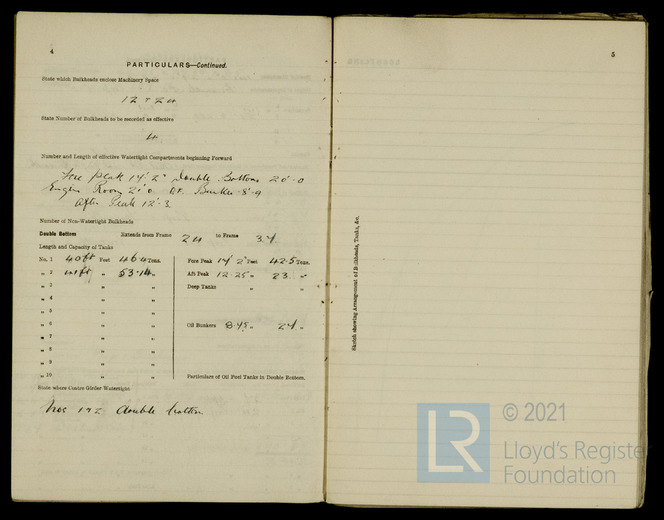 4
PARTICULARS—Continued.
State which Bulkheads enclose Machinery Space
12 & 24
State Number of Bulkheads to be recorded as effective
4
Number and Length of effective Watertight Compartments beginning Forward
Fore Peak 14'2" Double Bottom 20'-0
Engine Room 21'0 O.F. Bunker 8'-9
After Peak 12'.3
Number of Non-Watertight Bulkheads
Double Bottom Extends from Frame 24 to Frame 34
Length and Capacity of Tanks
No. 1 40 ft Feet 46.4 Tons. Fore Peak 14'2" Feet 42.5 Tons.
„ 2 „ 53.14 „ Aft Peak 12.25 „ 23 „
„ 3 „ „ Deep Tanks „ „
„ 4 „ „
„ 5 „ „
„ 6 „ „ Oil Bunkers 8.75 „ 24 „
„ 7 „ „
„ 8 „ „
„ 9 „ „
„ 10 „ „ Particulars of Oil Fuel Tanks in Double Bottom.
State where Centre Girder Watertight
Nos 1 & 2 double bottom
5
Sketch showing Arrangement of Bulkheads, Tanks, &c.
LR
© 2021
Lloyd's Register
Foundation